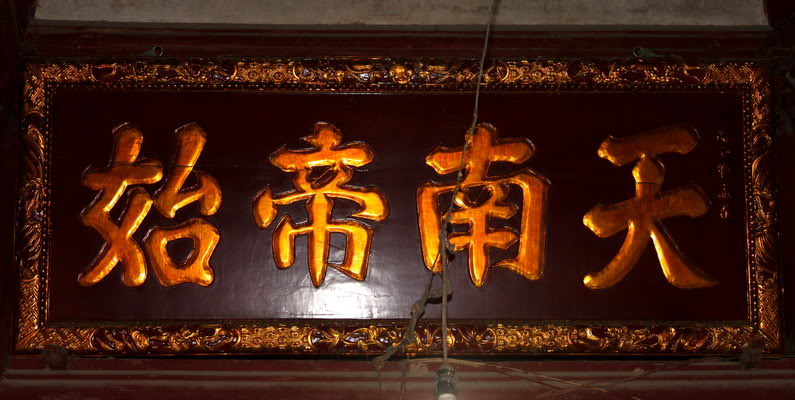 天南帝始